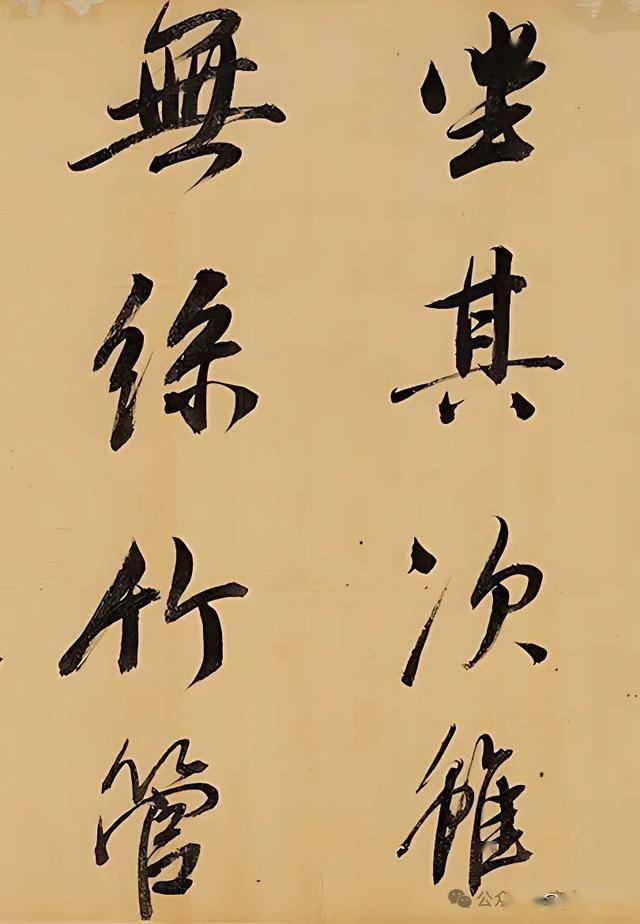 坐其次雖
無絲竹管
公众